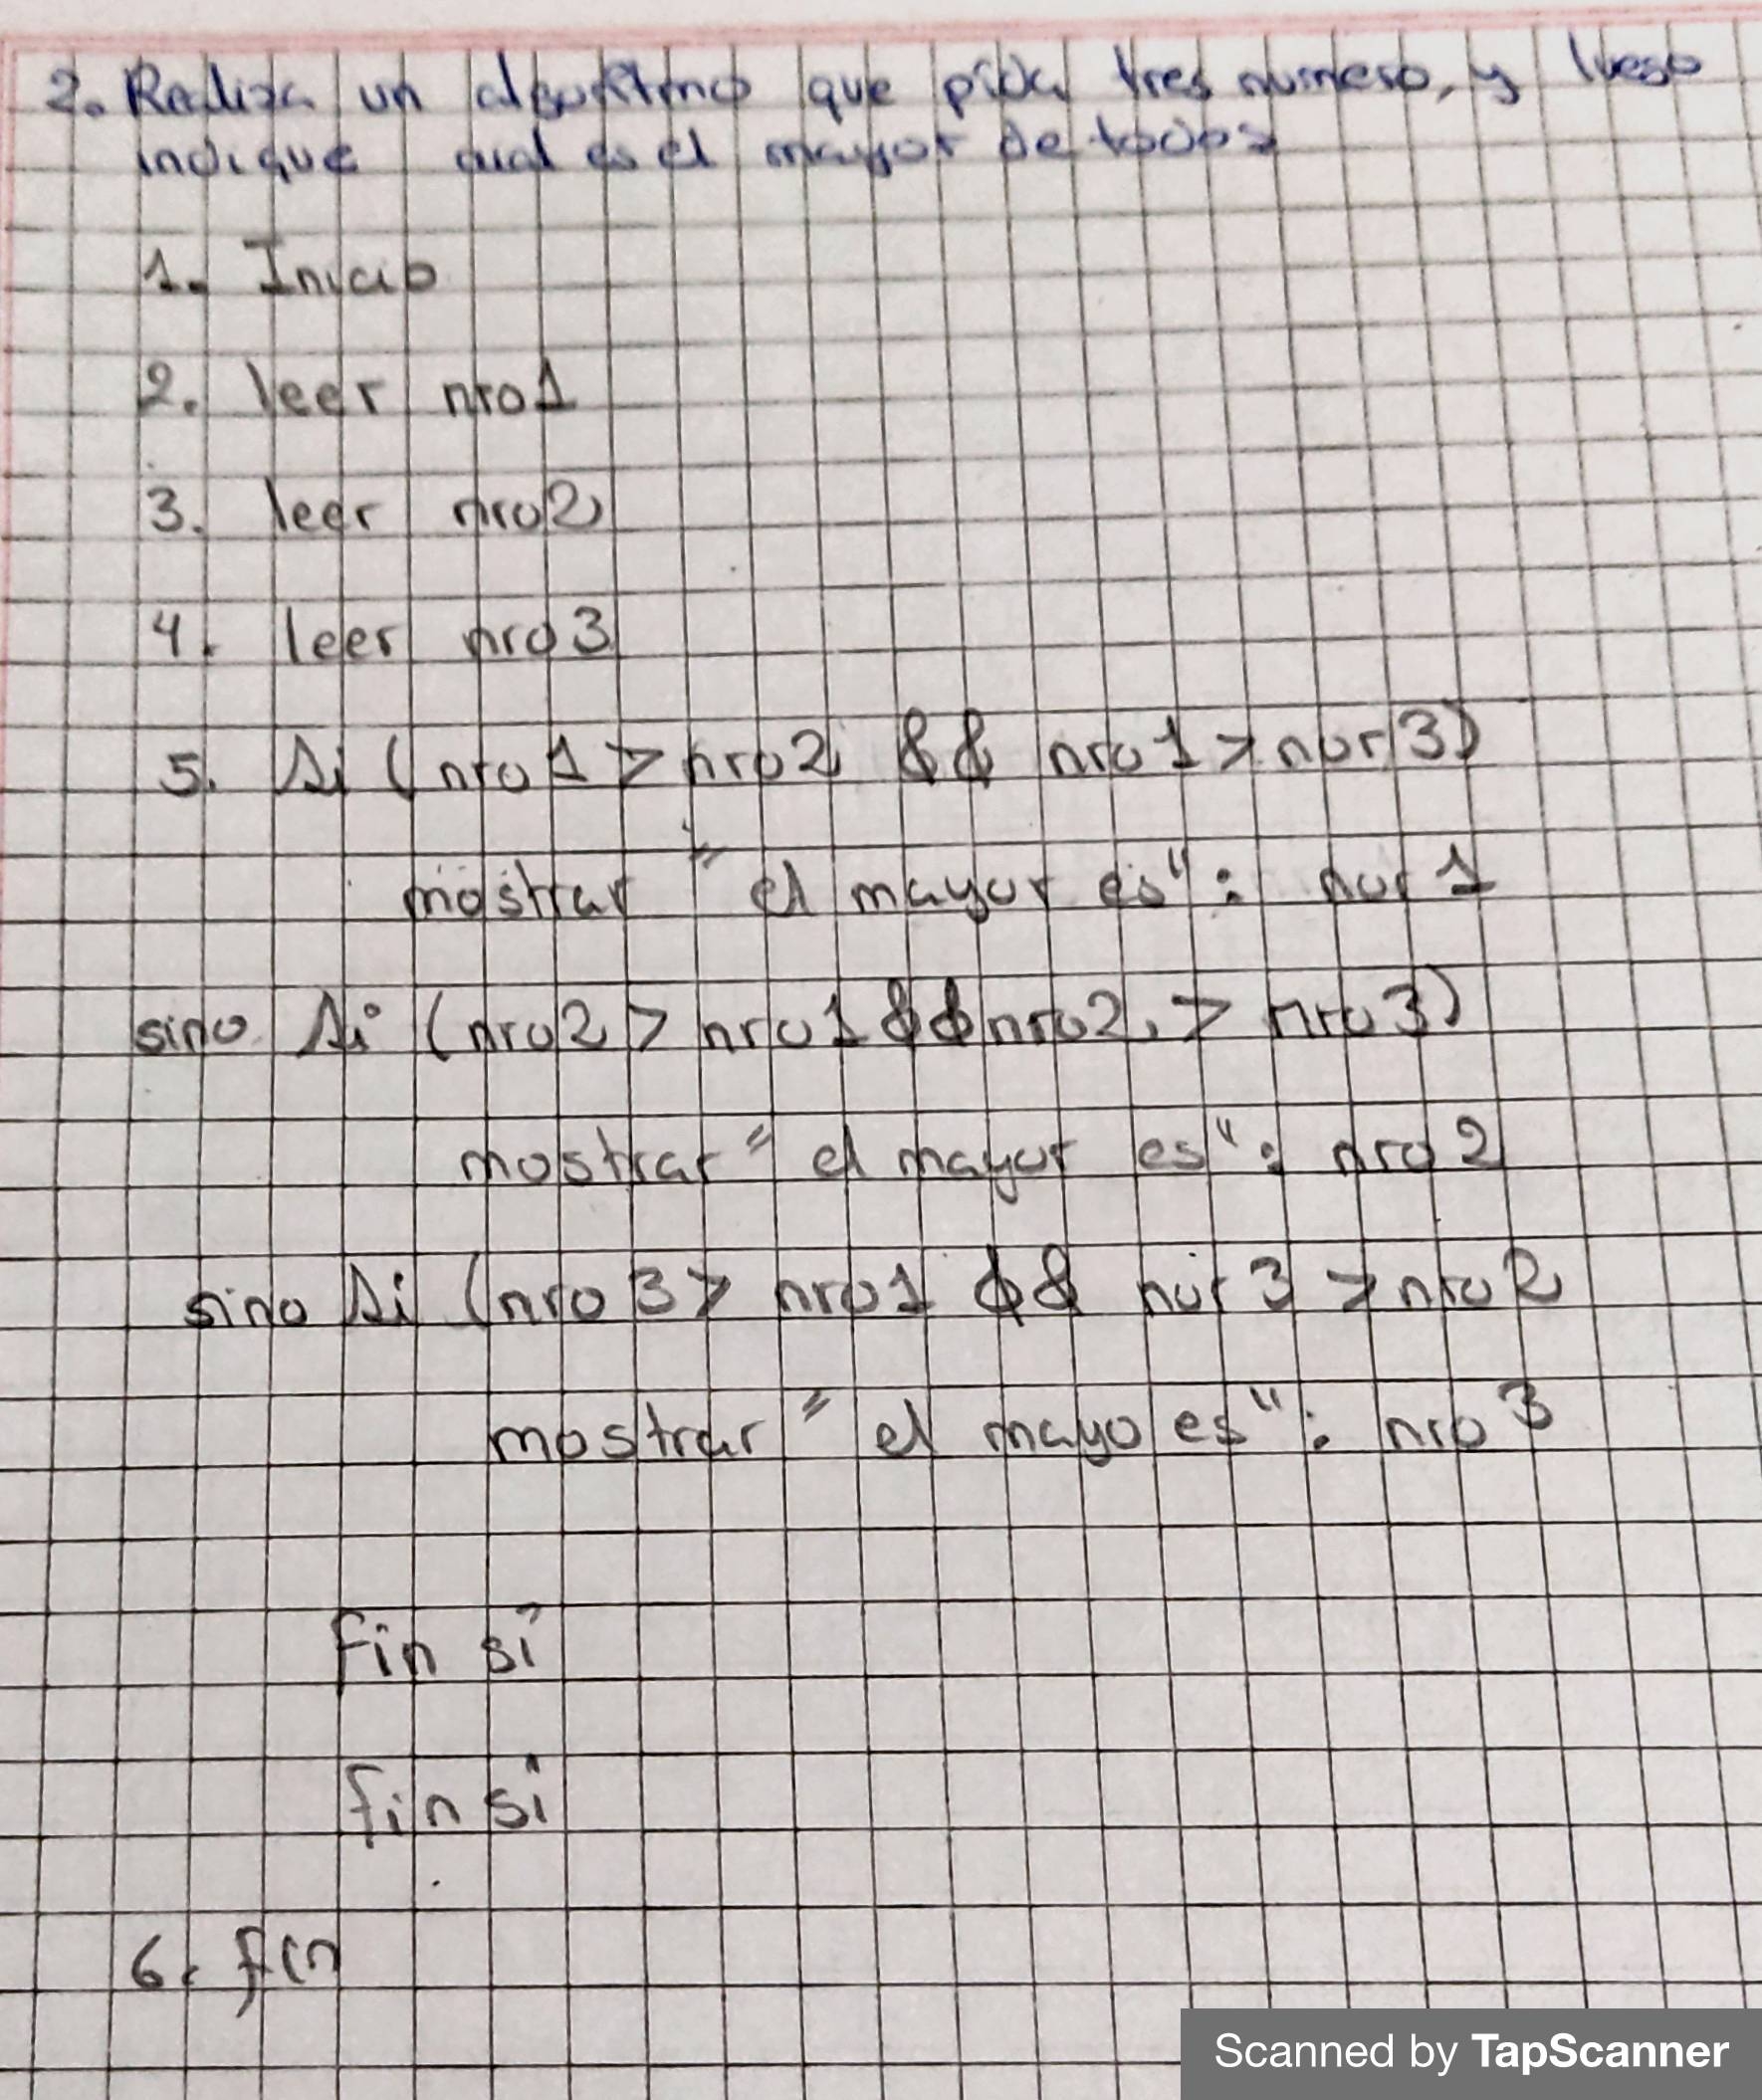 2. Realiza un algoritmo que pida tres numero, y luego
indique cual es el mayor de todos
1. Inicio
2. leer nro1
3. leer nro2
4. leer nro3
5. Si (nro1 > nro2 && nro1 > nor3)
mostrar "el mayor es": nor1
sino Si (nro2 > nro1 && nro2 > nro3)
mostrar "el mayor es": nro2
sino Si (nro3 > nro1 && nor3 > nro2
mostrar "el mayo es": nro3
fin si
fin si
6. fin
Scanned by TapScanner